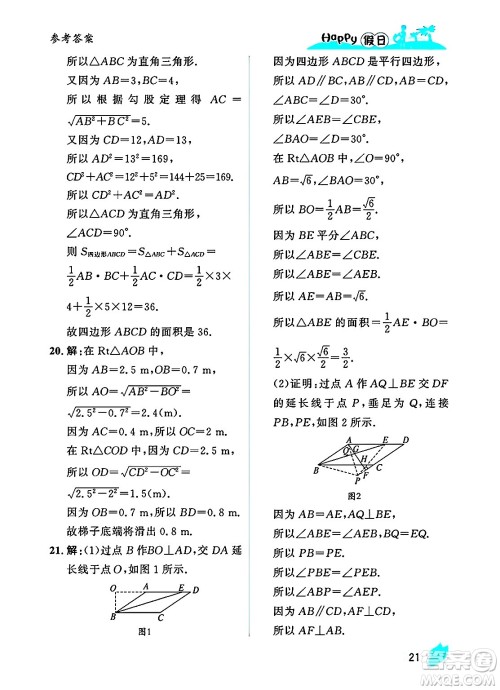 参考答案
Happy 假日
所以△ABC为直角三角形.
又因为AB=3，BC=4，
所以根据勾股定理得AC=
√AB²+BC²=5.
又因为CD=12，AD=13，
所以AD²=13²=169，
CD²+AC²=12²+5²=144+25=169.
所以CD²+AC²=AD².
所以△ACD为直角三角形，
∠ACD=90°.
则S四边形ABCD=S△ABC+S△ACD=
1/2AB·BC+1/2AC·CD=1/2×3×
4+1/2×5×12=36.
故四边形ABCD的面积是36.
20.解：在Rt△AOB中，
因为AB=2.5 m，OB=0.7 m，
所以AO=√AB²-BO²=
√2.5²-0.7²=2.4(m).
因为AC=0.4 m，所以OC=2 m.
在Rt△COD中，因为CD=2.5 m，
所以OD=√CD²-OC²=
√2.5²-2²=1.5(m).
因为OB=0.7 m，所以BD=0.8 m.
故梯子底端将滑出0.8 m.
21.解：(1)过点B作BO⊥AD，交DA延
长线于点O，如图1所示.
O A E D
B C
图1
因为四边形ABCD是平行四边形，
所以AD∥BC，∠D=∠ABC.
所以∠AEB=∠CBE，
∠OAB=∠ABC.
因为∠D=30°，
所以∠OAB=∠D=30°.
在Rt△OAB中，因为∠OAB=30°，
AB=√6，
所以BO=1/2AB=√6/2.
因为BE平分∠ABC，
所以∠ABE=∠CBE.
所以∠ABE=∠AEB.
所以AE=AB=√6.
所以△ABE的面积=1/2AE·BO=
1/2×√6×√6/2=3/2.
(2)证明：过点A作AQ⊥BE交DF
的延长线于点P，垂足为Q，连接
PB，PE，如图2所示.
A E D
Q G
H
B P F C
图2
因为AB=AE，AQ⊥BE，
所以∠ABE=∠AEB，BQ=EQ.
所以PB=PE.
所以∠PBE=∠PEB.
所以∠ABP=∠AEP.
因为AB∥CD，AF⊥CD，
所以AF⊥AB.
所以∠BAF=90°.
因为AQ⊥BE，
所以∠ABE=∠FAP.
21